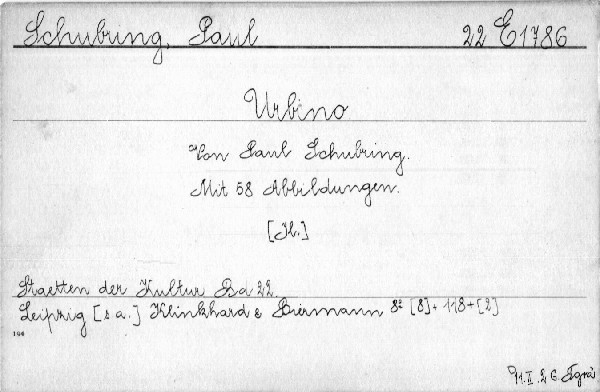 Schubring, Paul 22 E1786
Urbino
Von Paul Schubring.
Mit 58 Abbildungen.
[Jl.]
Staetten der Kultur Bd 22.
Leipzig [s a.] Klinkhard & Biermann 8° [8]+ 118+[2]